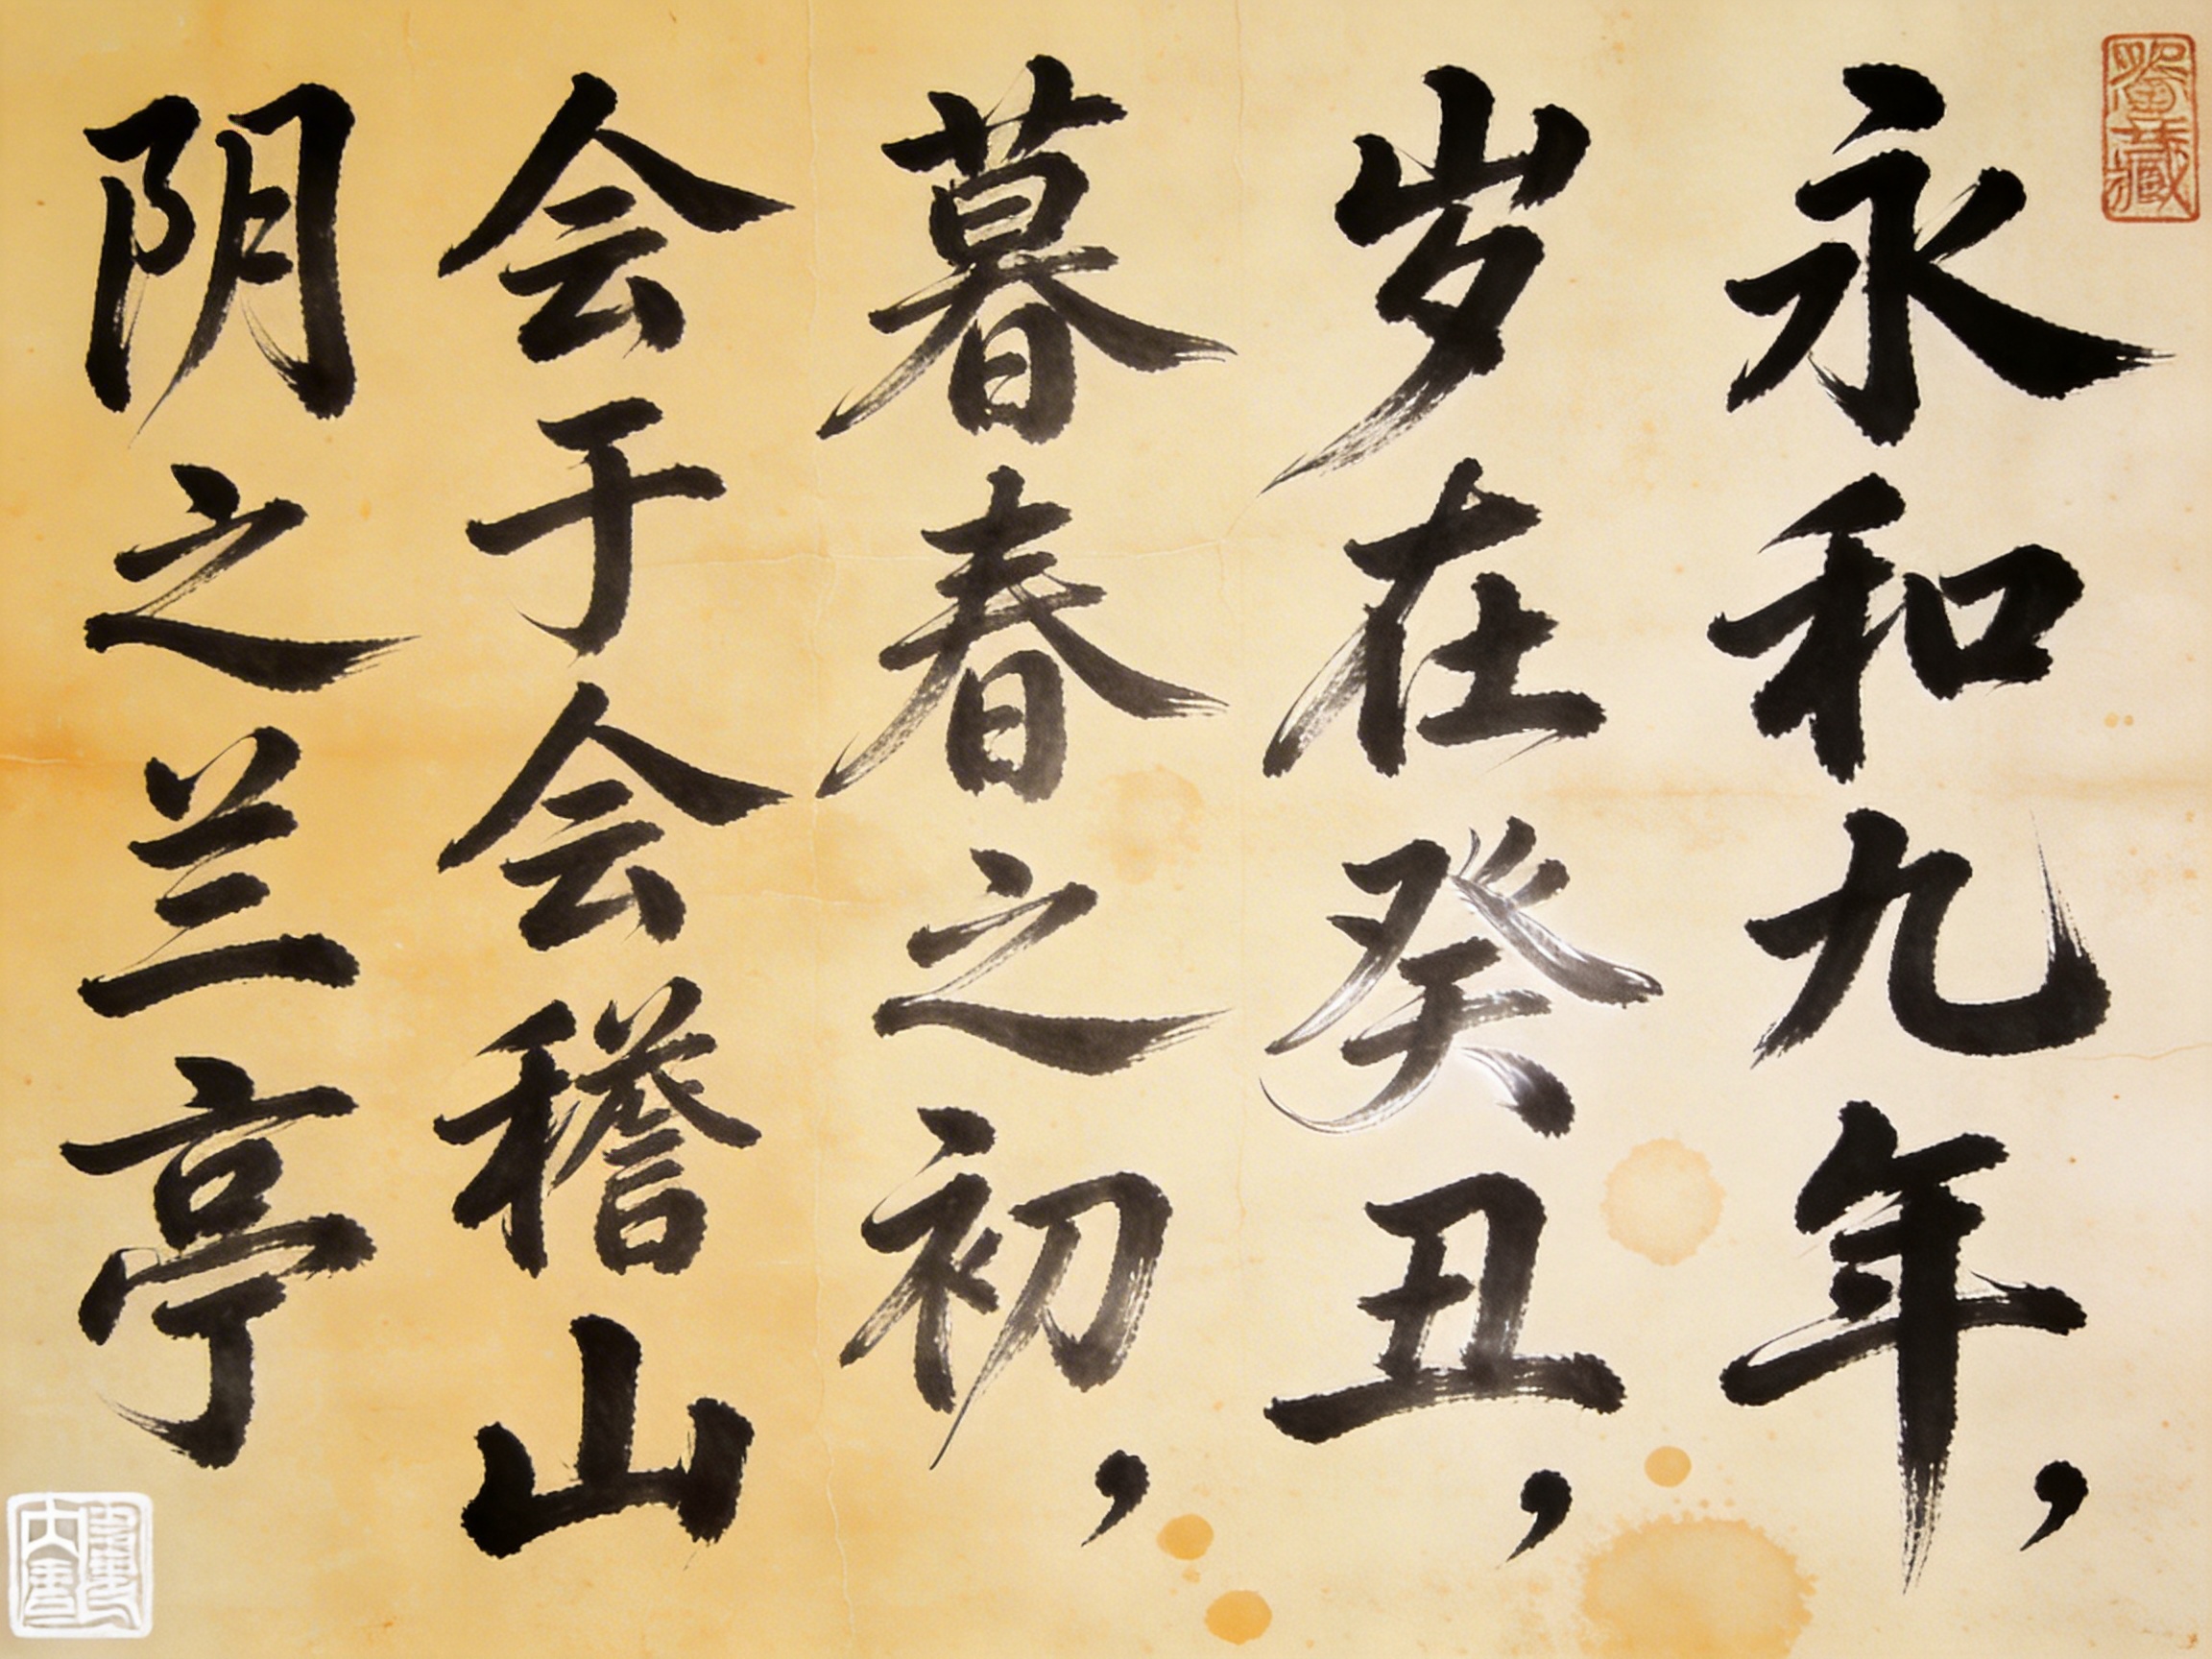 永和九年，
岁在癸丑，
暮春之初，
会于会稽山
阴之兰亭